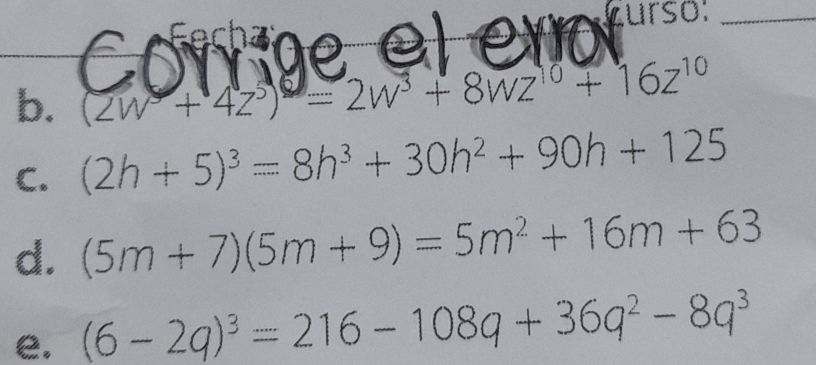 Fecha: Curso:
Corrige el error
b. (2w³ + 4z⁵)² = 2w³ + 8wz¹⁰ + 16z¹⁰
c. (2h + 5)³ = 8h³ + 30h² + 90h + 125
d. (5m + 7)(5m + 9) = 5m² + 16m + 63
e. (6 − 2q)³ = 216 − 108q + 36q² − 8q³